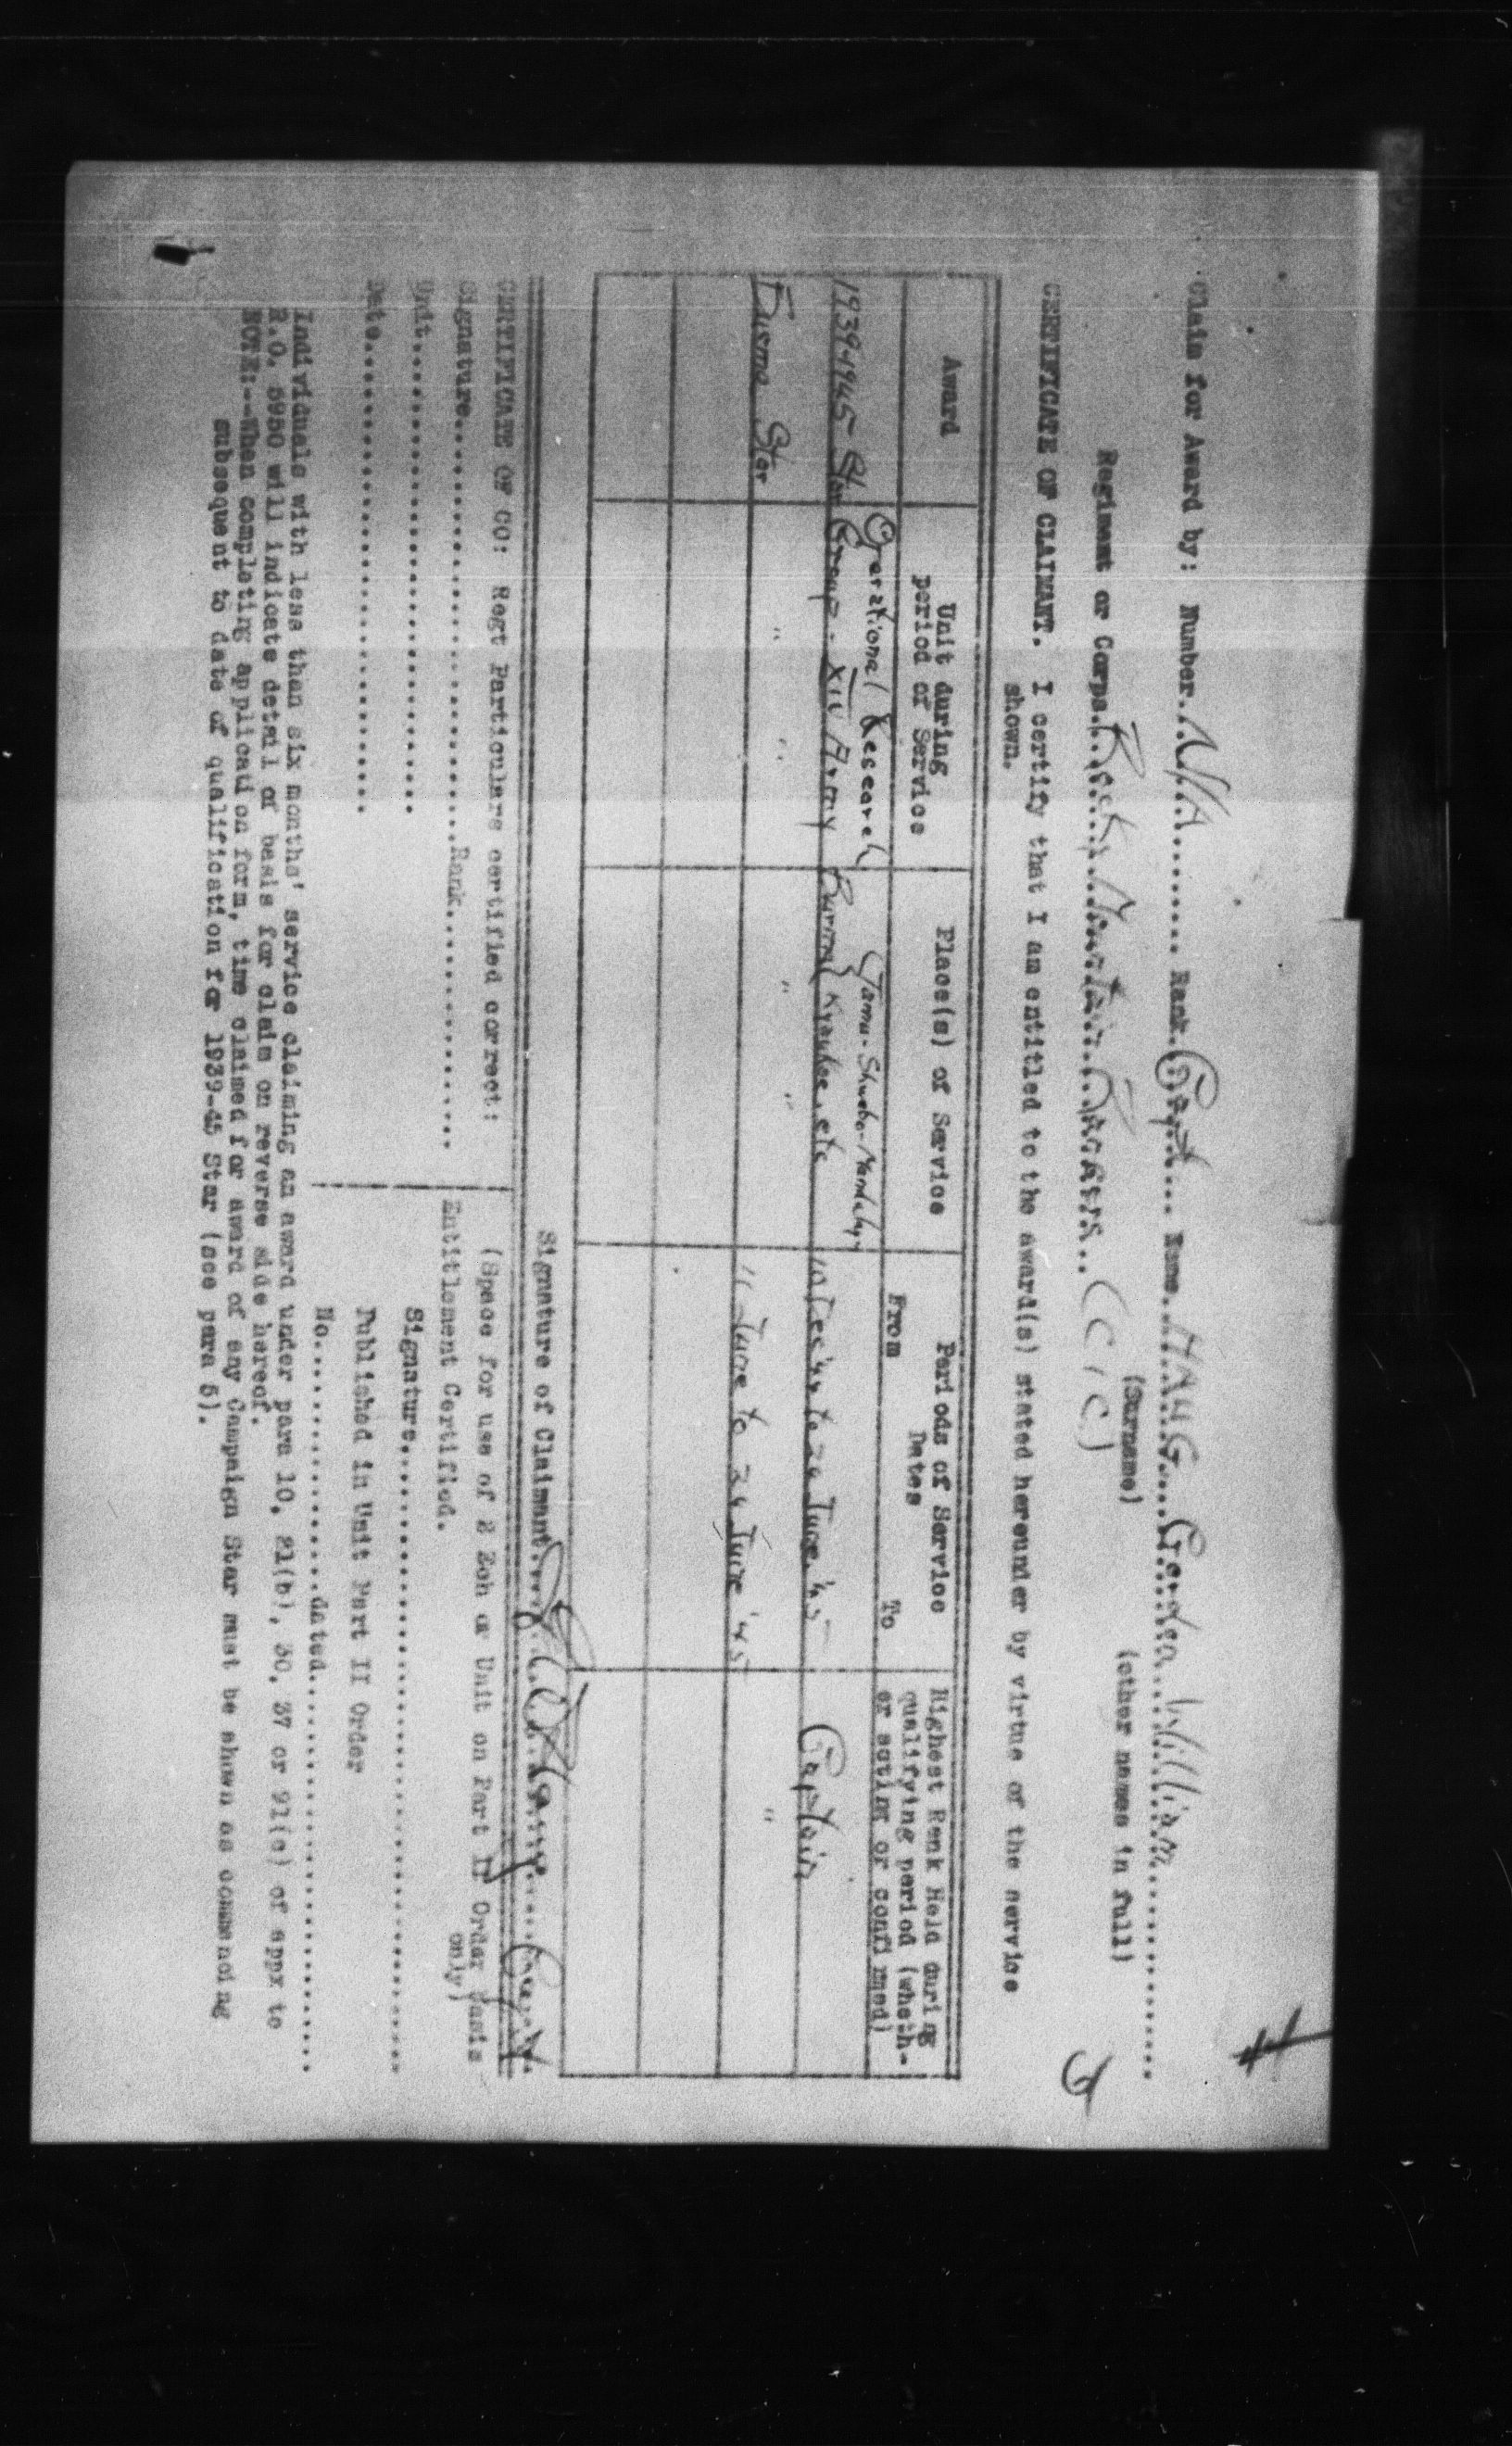 Claim for Award by: Number..N/A.......... Rank..Capt.... Name...HAUG.....Gordon..William...............
(Surname) (other names in full)
Regiment or Corps..Rocky Mountain Rangers.. (CIC)
CERTIFICATE OF CLAIMANT. I certify that I am entitled to the award(s) stated hereunder by virtue of the service
shown.
Award
Unit during
period of Service
Place(s) of Service
Periods of Service
Dates
From To
Highest Rank Held during
qualifying period (wheth-
er acting or confirmed)
1939-1945 Star
Operational Research
Group - XIV Army
Tamu - Shwebo - Mandalay,
Burma Kyaukse, etc
to 24 June, '45
Captain
Burma Star
" " " "
June to 24 June '45
"
Signature of Claimant............ Capt.
CERTIFICATE OF CO: Regt Particulars certified correct:
Signature..............................Rank................
Unit.....................
Date.....................
(Space for use of 2 Ech or Unit on Part II Order basis
only)
Entitlement Certified.
Signature........................................
Published in Unit Part II Order
No...................dated...........................
Individuals with less than six months' service claiming an award under para 10, 21(b), 30, 37 or 91(c) of appx to
R.O. 5950 will indicate detail of basis for claim on reverse side hereof.
NOTE:--When completing application form, time claimed for award of any Campaign Star must be shown as commencing
subsequent to date of qualification for 1939-45 Star (see para 5).